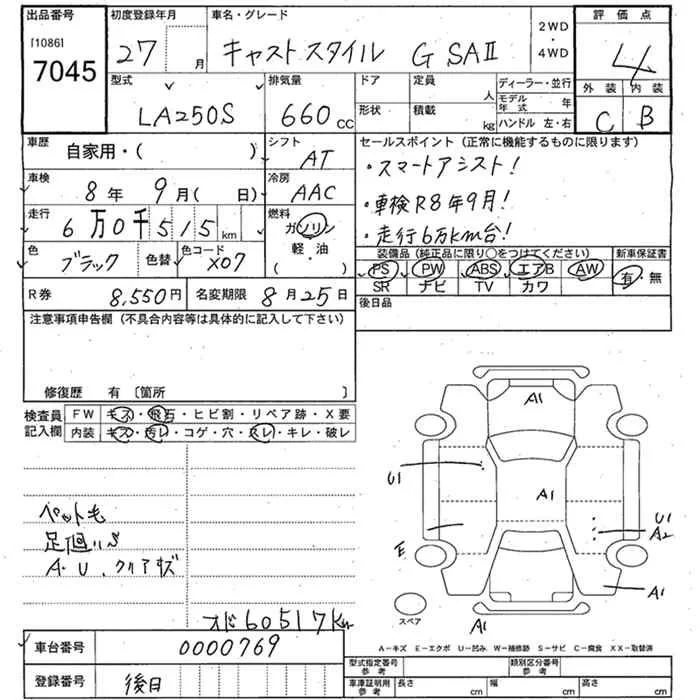 出品番号 初度登録年月 車名・グレード 2WD・4WD 評価点
[1086]
7045 27 月 キャストスタイル G SAⅡ 4
型式 排気量 ドア 定員 人 ディーラー・並行 外装 内装
LA250S 660cc 形状 積載 kg モデル年式 年 C B
ハンドル 左・右
車歴 自家用・( ) シフト AT セールスポイント (正常に機能するものに限ります)
・スマートアシスト!
車検 8年 9月( 日) 冷房 AAC ・車検R8年9月!
走行 6万0千515km 燃料 ガソリン・軽・油 ( ・ ) ・走行6万km台!
色 ブラック 色替 色コード X07 装備品 (純正品に限り○をつけてください) 新車保証書
PS PW ABS エアB AW 有・無
SR ナビ TV カワ
R券 8,550円 名変期限 8月25日 後日品
注意事項申告欄 (不具合内容等は具体的に記入して下さい)
修復歴 有 〔箇所 〕
検査員記入欄 FW キズ・飛石・ヒビ割・リペア跡・X要
内装 キズ・汚レ・コゲ・穴・スレ・キレ・破レ
A1
U1
A1
U1
A2
E
A1
A1
スペア
A-キズ E-エクボ U-凹み W-補修跡 S-サビ C-腐食 XX-取替済
A・U
オド60517km
車台番号 0000769
登録番号 後日
型式指定番号 参考 類別区分番号 参考
車庫証明用 参考 長さ cm 幅 cm 高さ cm